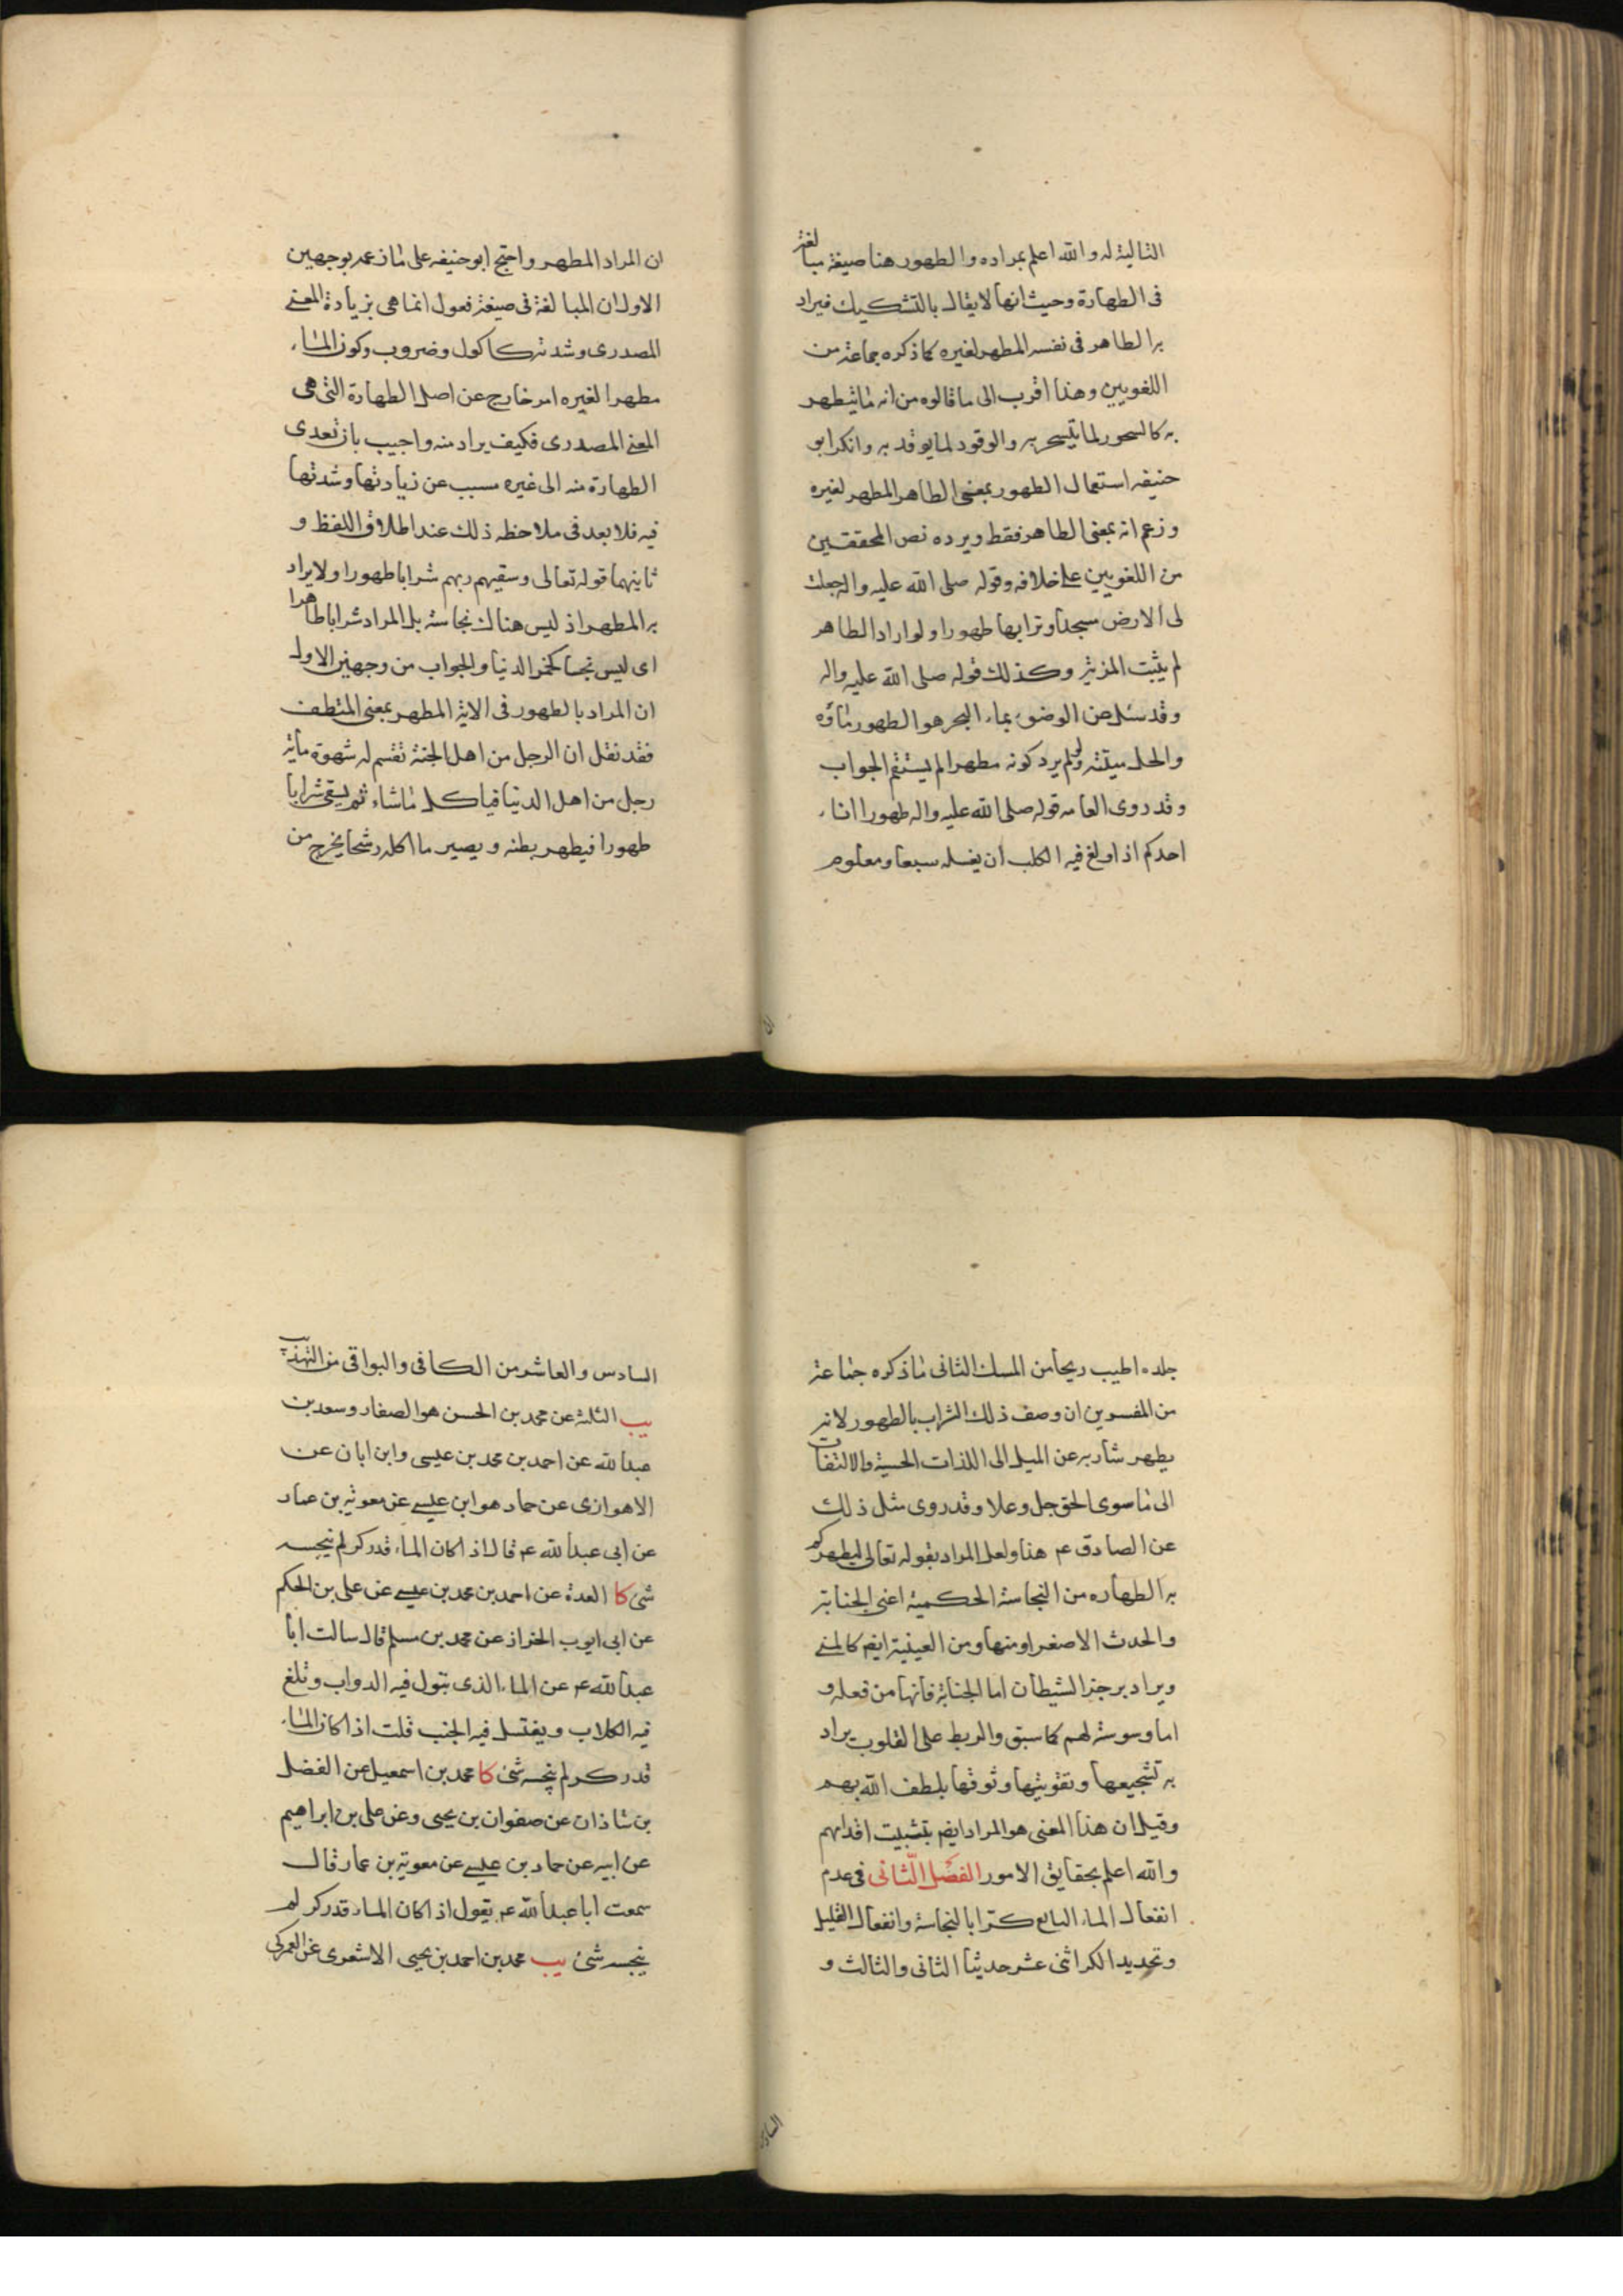 التالية له والله اعلم بمراده والطهور هنا صيغة مبالغة
فى الطهارة وحيث انها لا يقال بالتشكيك فيراد
به الطاهر فى نفسه المطهر لغيره كما ذكره جماعة من
اللغويين وهذا اقرب الى ما قالوه من انه ما يتطهر
به كالسحور لما يتسحر به والوقود لما يوقد به وانكر ابو
حنيفه استعمال الطهور بمعنى الطاهر المطهر لغيره
وزعم انه بمعنى الطاهر فقط ويرده نص المحققين
من اللغويين على خلافه وقوله صلى الله عليه واله جعلت
لى الارض مسجدا وترابها طهورا ولو اراد الطاهر
لم يثبت المزية وكذلك قوله صلى الله عليه واله
وقد سئل عن الوضوء بماء البحر هو الطهور ماؤه
والحل ميتته ولو لم يرد كونه مطهرا لم يستقم الجواب
وقد روى العامه قوله صلى الله عليه واله طهورا اناء
احدكم اذا ولغ فيه الكلب ان يغسله سبعا ومعلوم
ان المراد المطهر واحتج ابو حنيفه على ما زعمه بوجهين
الاول ان المبالغة فى صيغة فعول انما هى بزيادة المعنى
المصدرى وشدته كاكول وضروب وكون الماء
مطهرا لغيره امر خارج عن اصل الطهارة التى هى
المعنى المصدرى فكيف يراد منه واجيب بان تعدى
الطهارة منه الى غيره مسبب عن زيادتها وشدتها
فيه فلا بعد فى ملاحظه ذلك عند اطلاق اللفظ و
ثانيهما قوله تعالى وسقيهم ربهم شرابا طهورا ولا يراد
به المطهر اذ ليس هناك نجاسة بل المراد شرابا طاهرا
اى ليس نجسا كخمر الدنيا والجواب من وجهين الاول
ان المراد بالطهور فى الاية المطهر بمعنى المنظف
فقد نقل ان الرجل من اهل الجنة تقسم له شهوة مأية
رجل من اهل الدنيا فياكل ما شاء ثم يسقى شرابا
طهورا فيطهر بطنه ويصير ما اكله رشحا يخرج من
جلده اطيب ريحا من المسك الثانى ما ذكره جماعة
من المفسرين ان وصف ذلك الشراب بالطهور لانه
يطهر شاربه عن الميل الى اللذات الحسية والالتفات
الى ما سوى الحق جل وعلا وقد روى مثل ذلك
عن الصادق ع هنا ولعل المراد بقوله تعالى ليطهركم
به الطهاره من النجاسة الحكمية اعنى الجنابة
والحدث الاصغر او منها ومن العينية ايضا كالمنى
ويراد برجز الشيطان اما الجنابة فانها من فعله و
اما وسوسته لهم كما سبق والربط على القلوب يراد
به تشجيعها وتقويتها وثوقها بلطف الله بهم
وقيل ان هذا المعنى هو المراد ايضا بتثبيت اقدامهم
والله اعلم بحقايق الامور الفصل الثانى فى عدم
انفعال الماء البالغ كرا بالنجاسة وانفعال القليل
وتحديد الكر اثنى عشر حديثا الثانى والثالث و
السادس والعاشر من الكافى والبواقى من التهذيب
يب الثلثة عن محمد بن الحسن هو الصفار وسعد بن
عبدالله عن احمد بن محمد بن عيسى وابن ابان عن
الاهوازى عن حماد هو ابن عيسى عن معوية بن عمار
عن ابى عبدالله ع قال اذا كان الماء قدر كر لم ينجسه
شئ كا العدة عن احمد بن محمد بن عيسى عن على بن الحكم
عن ابى ايوب الخزاز عن محمد بن مسلم قال سالت ابا
عبدالله ع عن الماء الذى تبول فيه الدواب وتلغ
فيه الكلاب ويغتسل فيه الجنب قلت اذا كان الماء
قدر كر لم ينجسه شئ كا محمد بن اسمعيل عن الفضل
بن شاذان عن صفوان بن يحيى وعن على بن ابراهيم
عن ابيه عن حماد بن عيسى عن معوية بن عمار قال
سمعت ابا عبدالله ع يقول اذا كان الماء قدر كر لم
ينجسه شئ يب محمد بن احمد بن يحيى الاشعرى عن العمركى